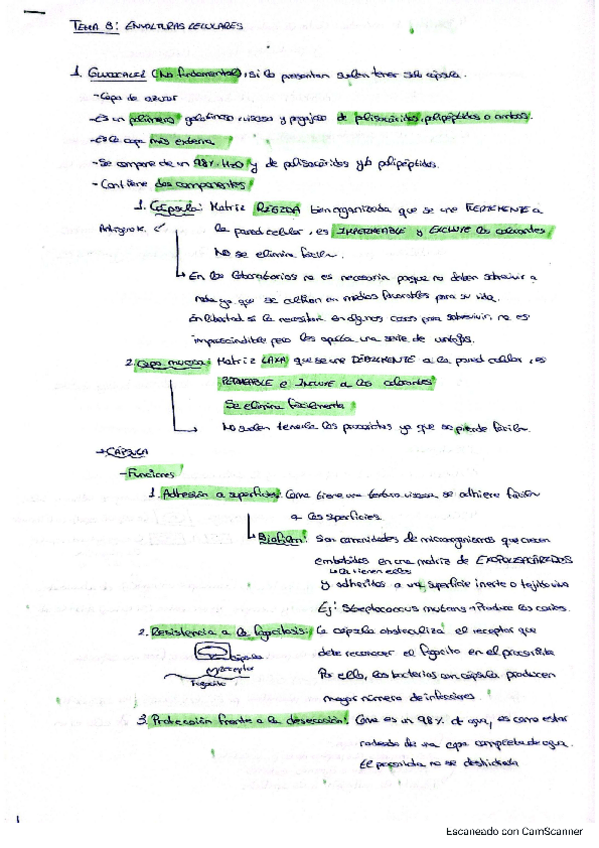 TEMA 8: ENVOLTURAS CELULARES
1. GLUCOCALIZ (No fundamental), si lo presentan suelen tener solo cápsula.
- Capa de azúcar
- Es un polímero gelatinoso viscoso y pegajoso de polisacáridos, polipéptidos o ambos.
- Es la capa más externa
- Se compone de un 98% H2O y de polisacáridos y/o polipéptidos.
- Contiene dos componentes
1. Cápsula: Matriz RÍGIDA bien organizada que se une FUERTEMENTE a
la pared celular, es IMPERMEABLE y EXCLUYE los colorantes
No se elimina fácil.
En los laboratorios no es necesaria porque no deben sobrevivir a
nada ya que se cultivan en medios favorables para su vida.
En libertad si la necesitan en algunos casos para sobrevivir, no es
imprescindible pero les aporta una serie de ventajas.
2. Capa mucosa: Matriz LAXA que se une DÉBILMENTE a la pared celular, es
PERMEABLE e INCLUYE a los colorantes
Se elimina fácilmente
No suelen tenerla los procariotas ya que se pierde fácil.
→ CÁPSULA
- Funciones
1. Adhesión a superficies: Como tiene una textura viscosa se adhiere fácil
a las superficies.
Biofilm: Son comunidades de microorganismos que crecen
embebidos en una matriz de EXOPOLISACÁRIDOS
y adheridos a una superficie inerte o tejido vivo
Ej: Streptococcus mutans → Produce las caries.
2. Resistencia a la fagocitosis: La cápsula obstaculiza el receptor que
debe reconocer el fagocito en el procariota
cápsula
receptor
Fagocito
Por ello, las bacterias con cápsula producen
mayor número de infecciones.
3. Protección frente a la desecación: Como es un 98% de agua, es como estar
rodeada de una capa completa de agua.
El procariota no se deshidrata
Escaneado con CamScanner